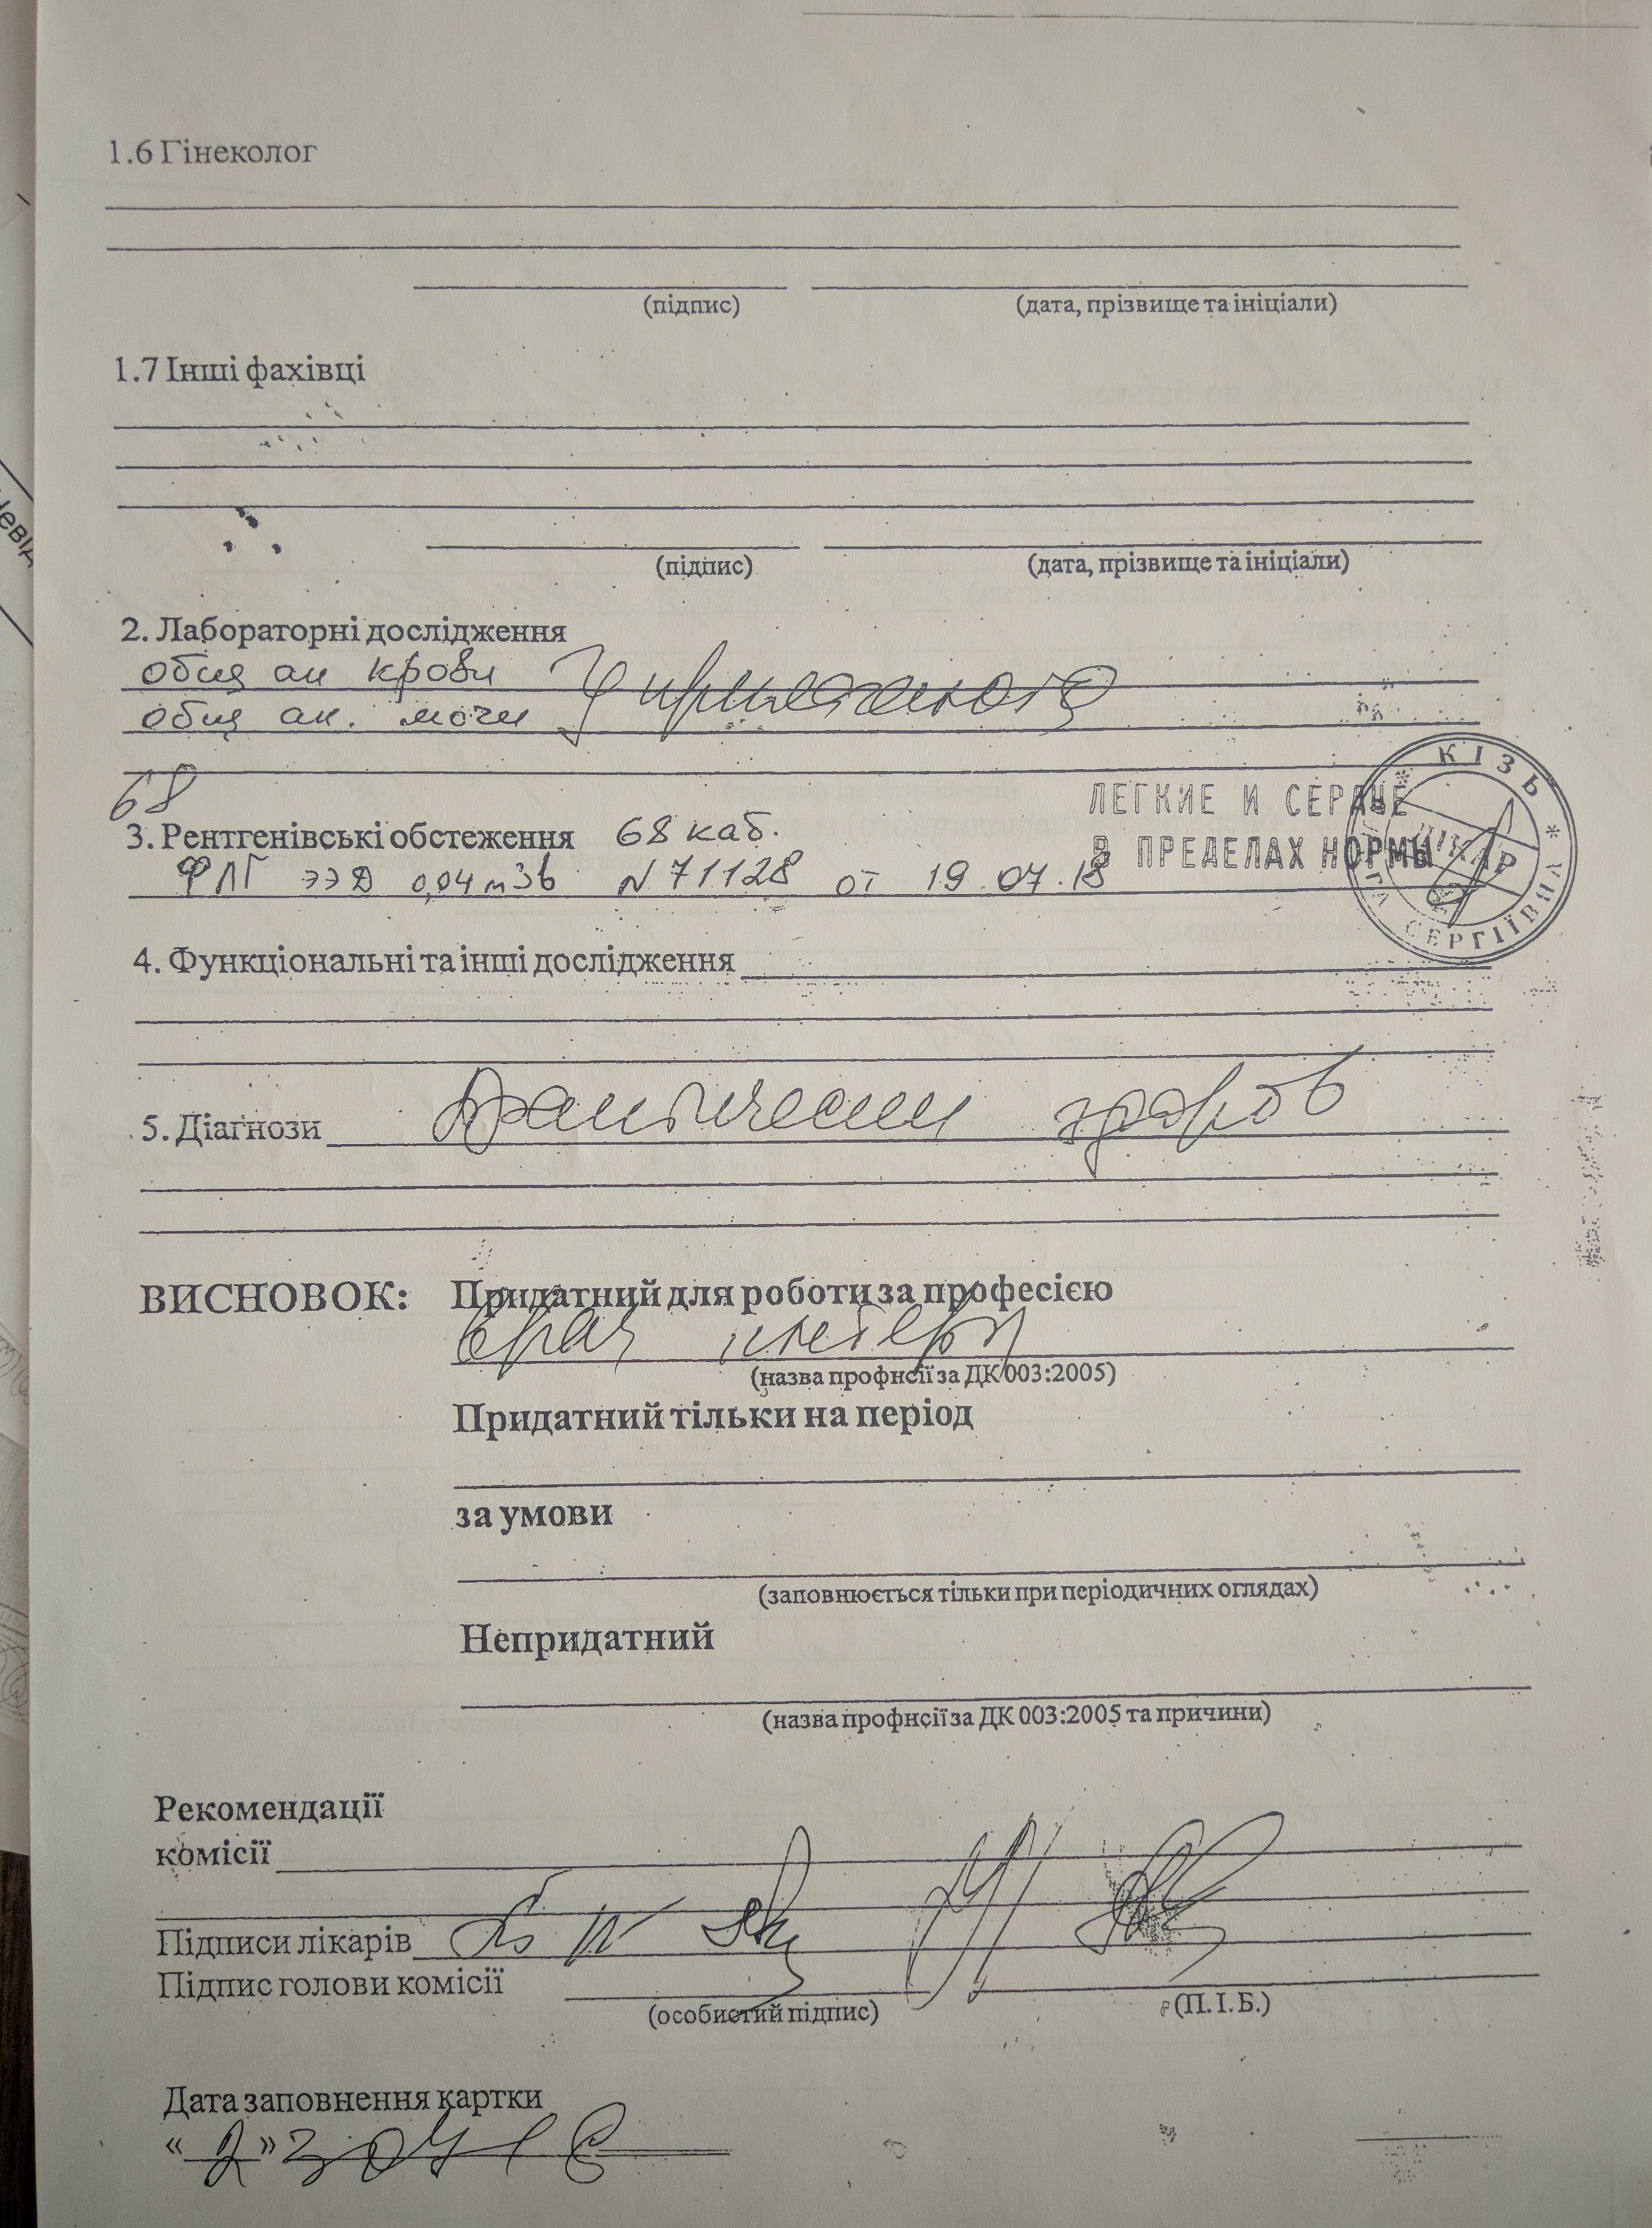 1.6 Гінеколог
(підпис) (дата, прізвище та ініціали)
1.7 Інші фахівці
(підпис) (дата, прізвище та ініціали)
2. Лабораторні дослідження
общ ан крови
общ ан. мочи
68
ЛЕГКИЕ И СЕРДЦЕ
В ПРЕДЕЛАХ НОРМЫ
КІЗЬ * СЕРГІЇВНА *
ЛІКАР
3. Рентгенівські обстеження 68 каб.
ФЛГ ЭЭД 0,04 mЗв N 71128 от 19.07.18
4. Функціональні та інші дослідження
5. Діагнози практически здоров
ВИСНОВОК: Придатний для роботи за професією
врач интерн
(назва профнсії за ДК 003:2005)
Придатний тільки на період
за умови
(заповнюється тільки при періодичних оглядах)
Непридатний
(назва профнсії за ДК 003:2005 та причини)
Рекомендації
комісії
Підписи лікарів
Підпис голови комісії
(особистий підпис) (П.І.Б.)
Дата заповнення картки